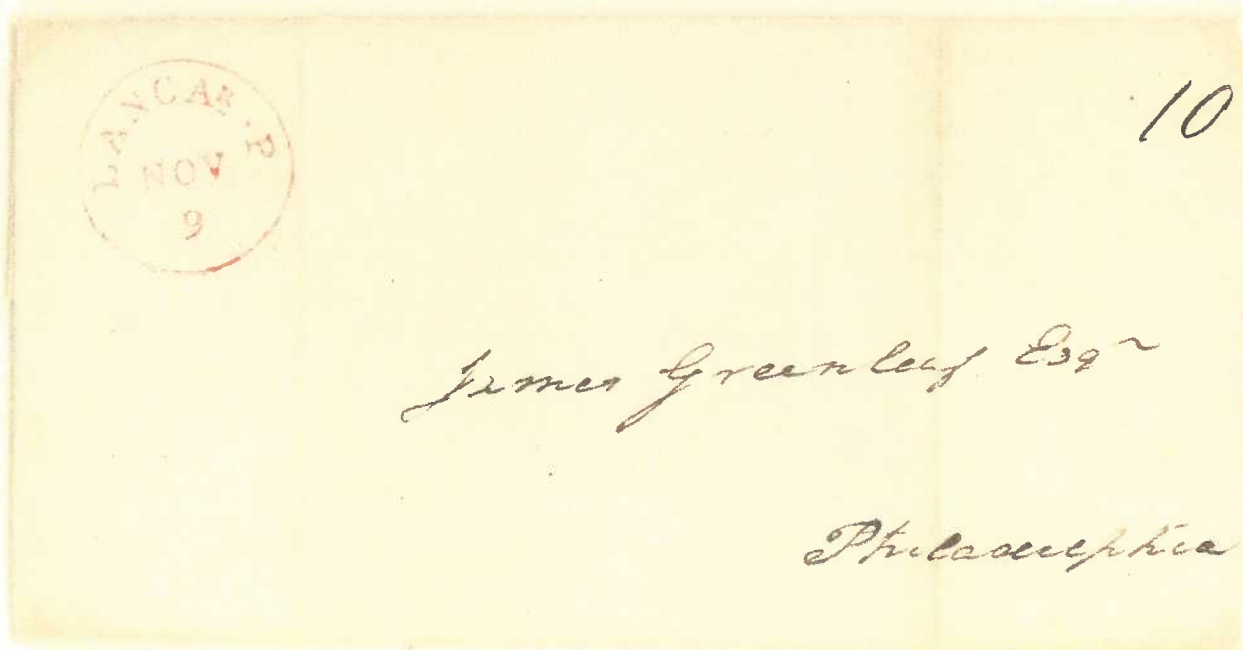 LANCAR.P
NOV
9
10
James Greenleaf Esqr
Philadelphia